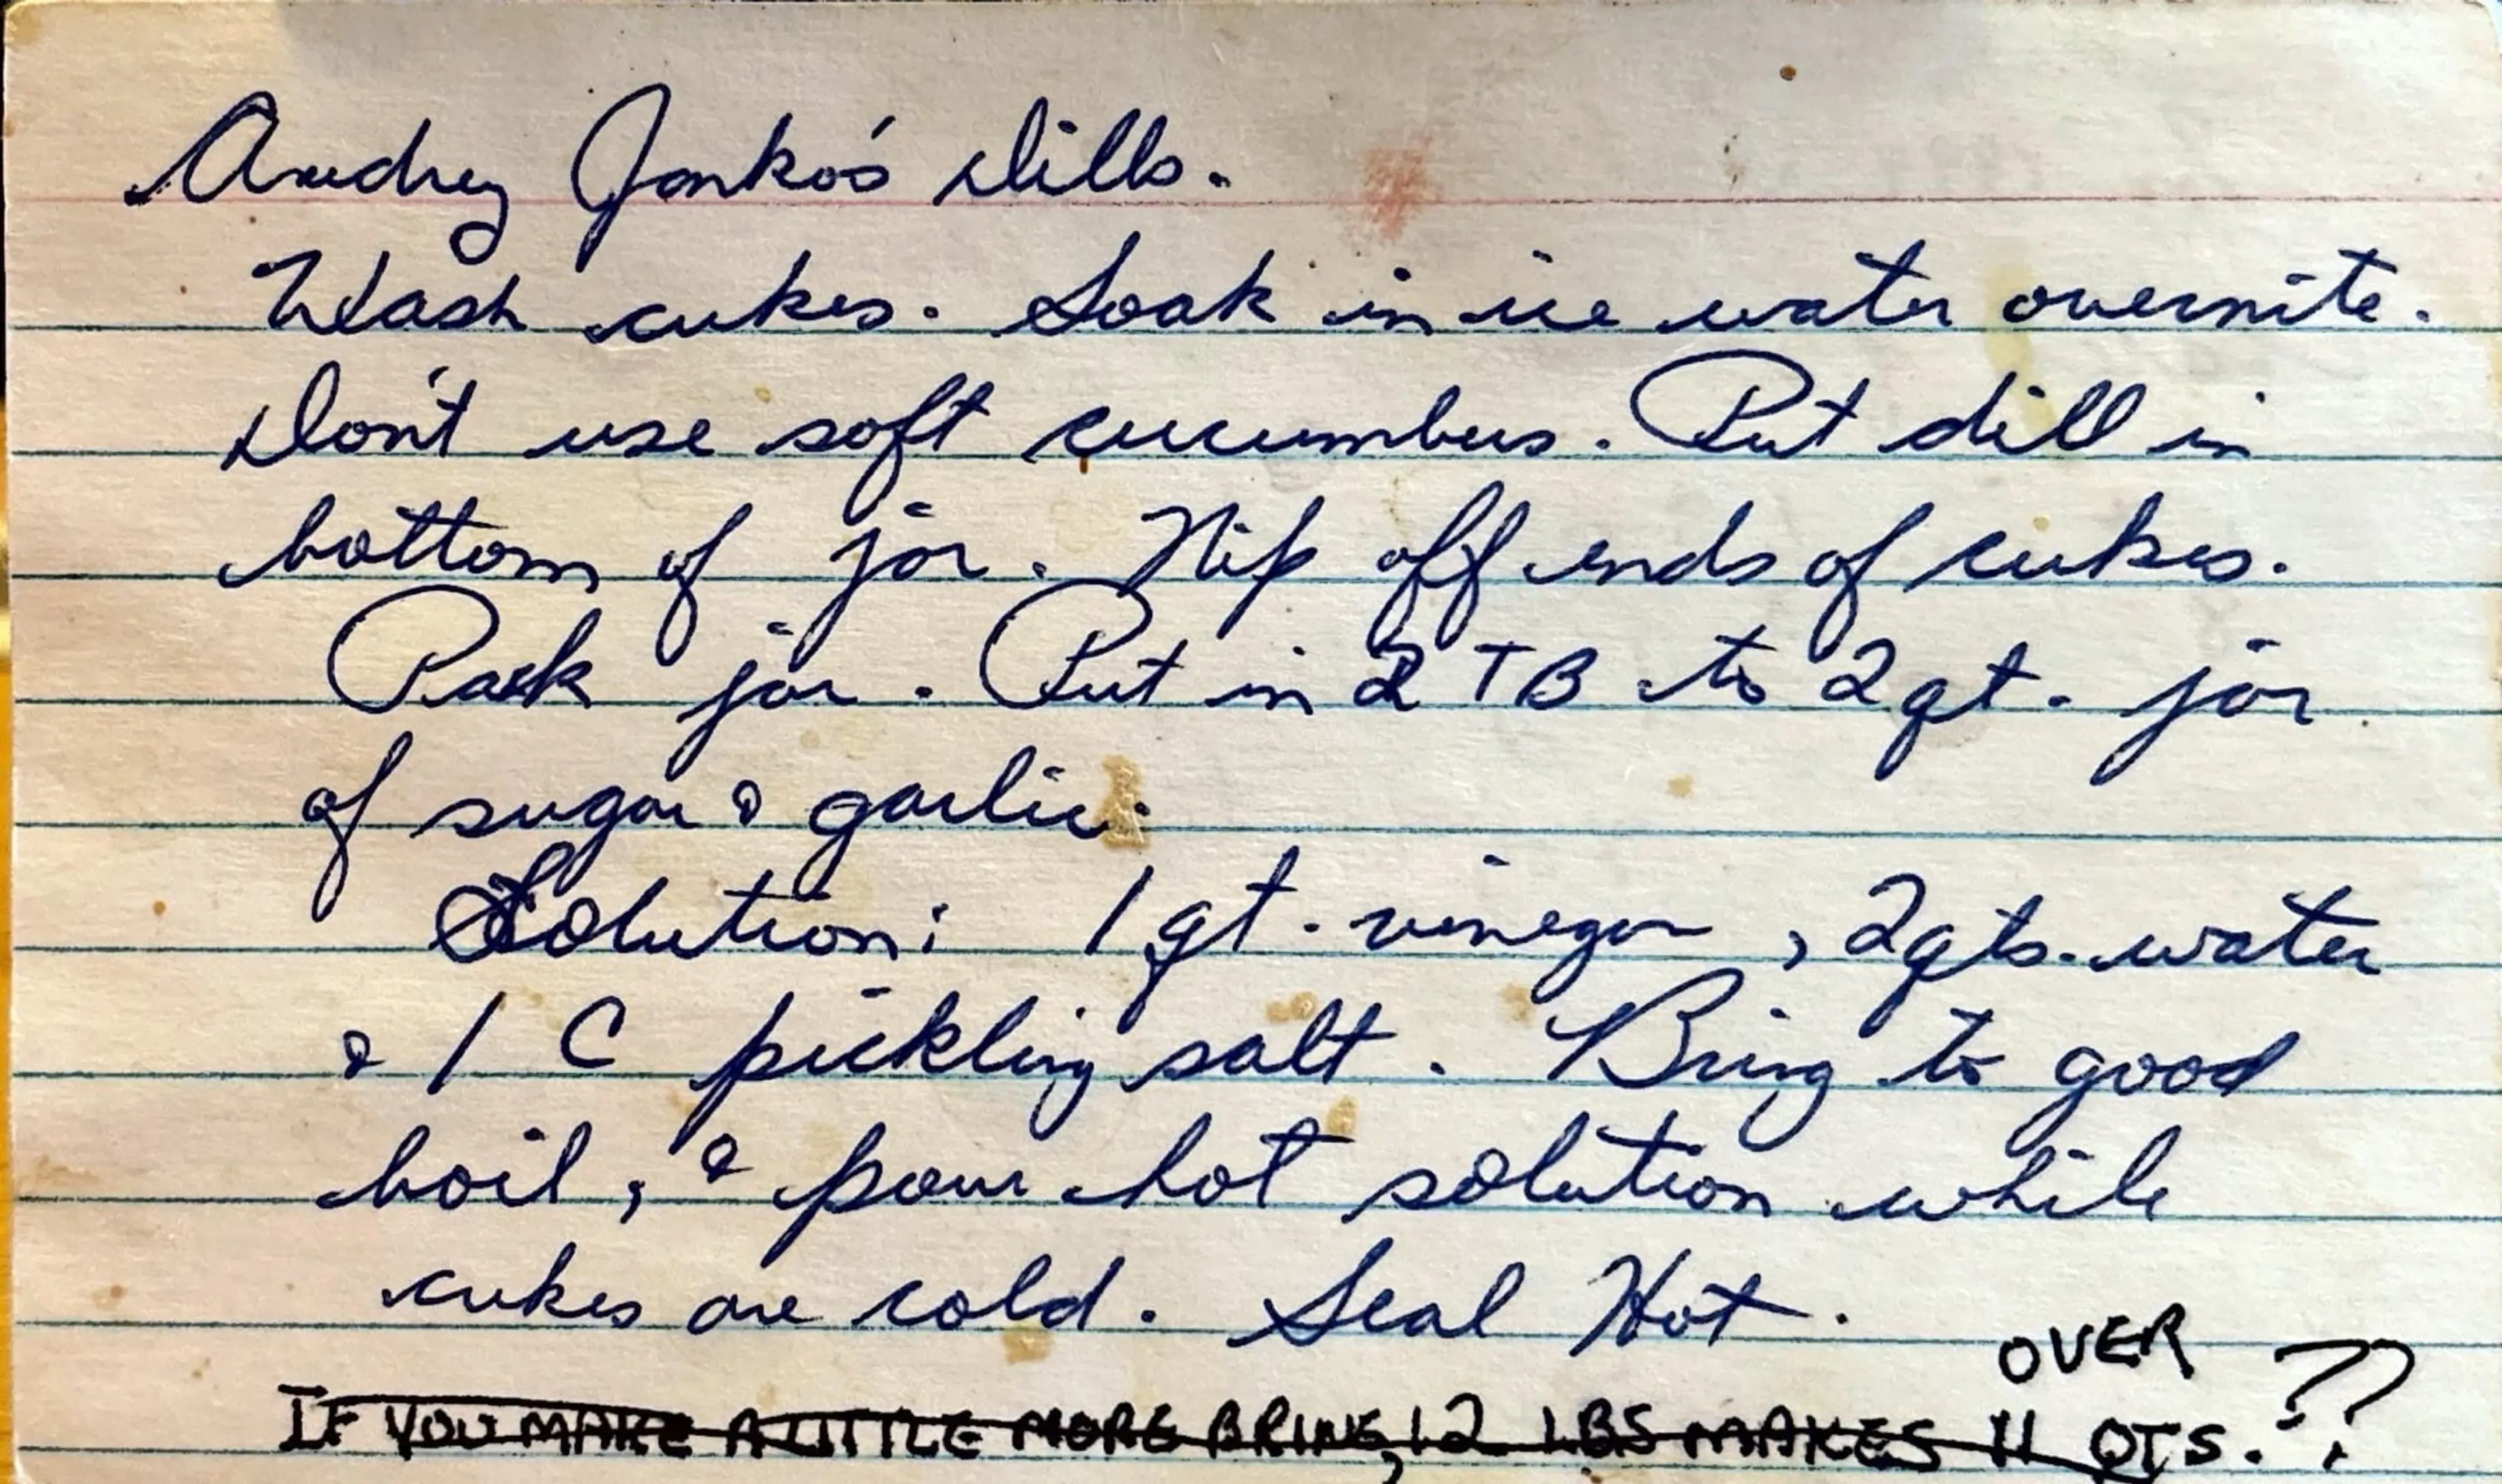 Audrey Janko's Dills.
Wash cukes. Soak in ice water overnite.
Don't use soft cucumbers. Put dill in
bottom of jar. Nip off ends of cukes.
Pack jar. Put in 2 TB to 2 qt. jar
of sugar & garlic.
Solution: 1 qt. vinegar, 2 qts. water
& 1 C pickling salt. Bring to good
boil, & pour hot solution while
cukes are cold. Seal Hot.
OVER
IF YOU MAKE A LITTLE MORE BRINE, 12 LBS MAKES 11 QTS. ??